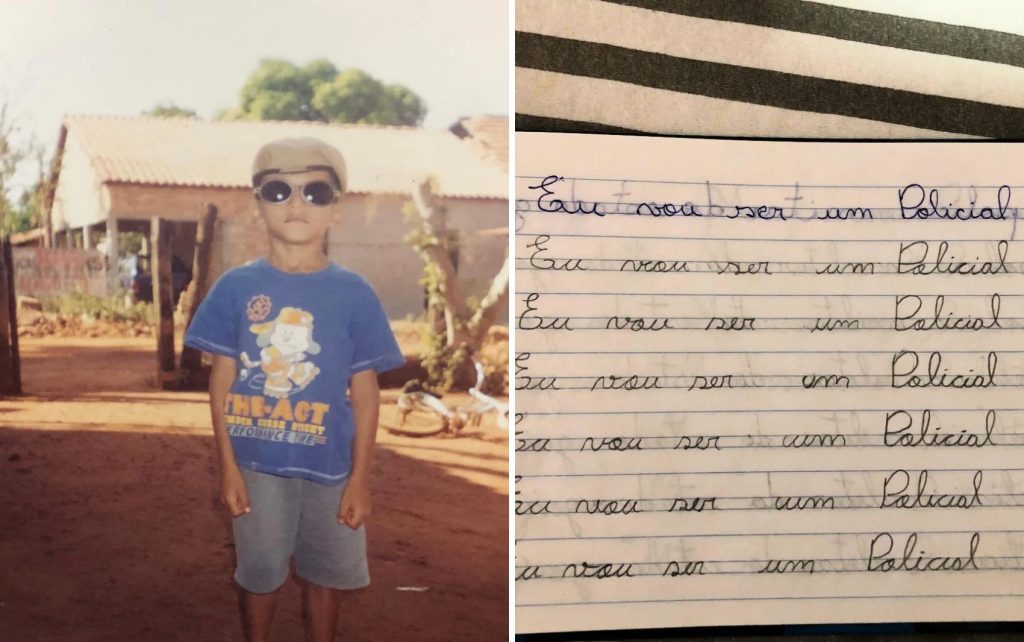 THE-ACT
THE
Eu vou ser um Policial
Eu vou ser um Policial
Eu vou ser um Policial
Eu vou ser um Policial
Eu vou ser um Policial
Eu vou ser um Policial
u vou ser um Policial